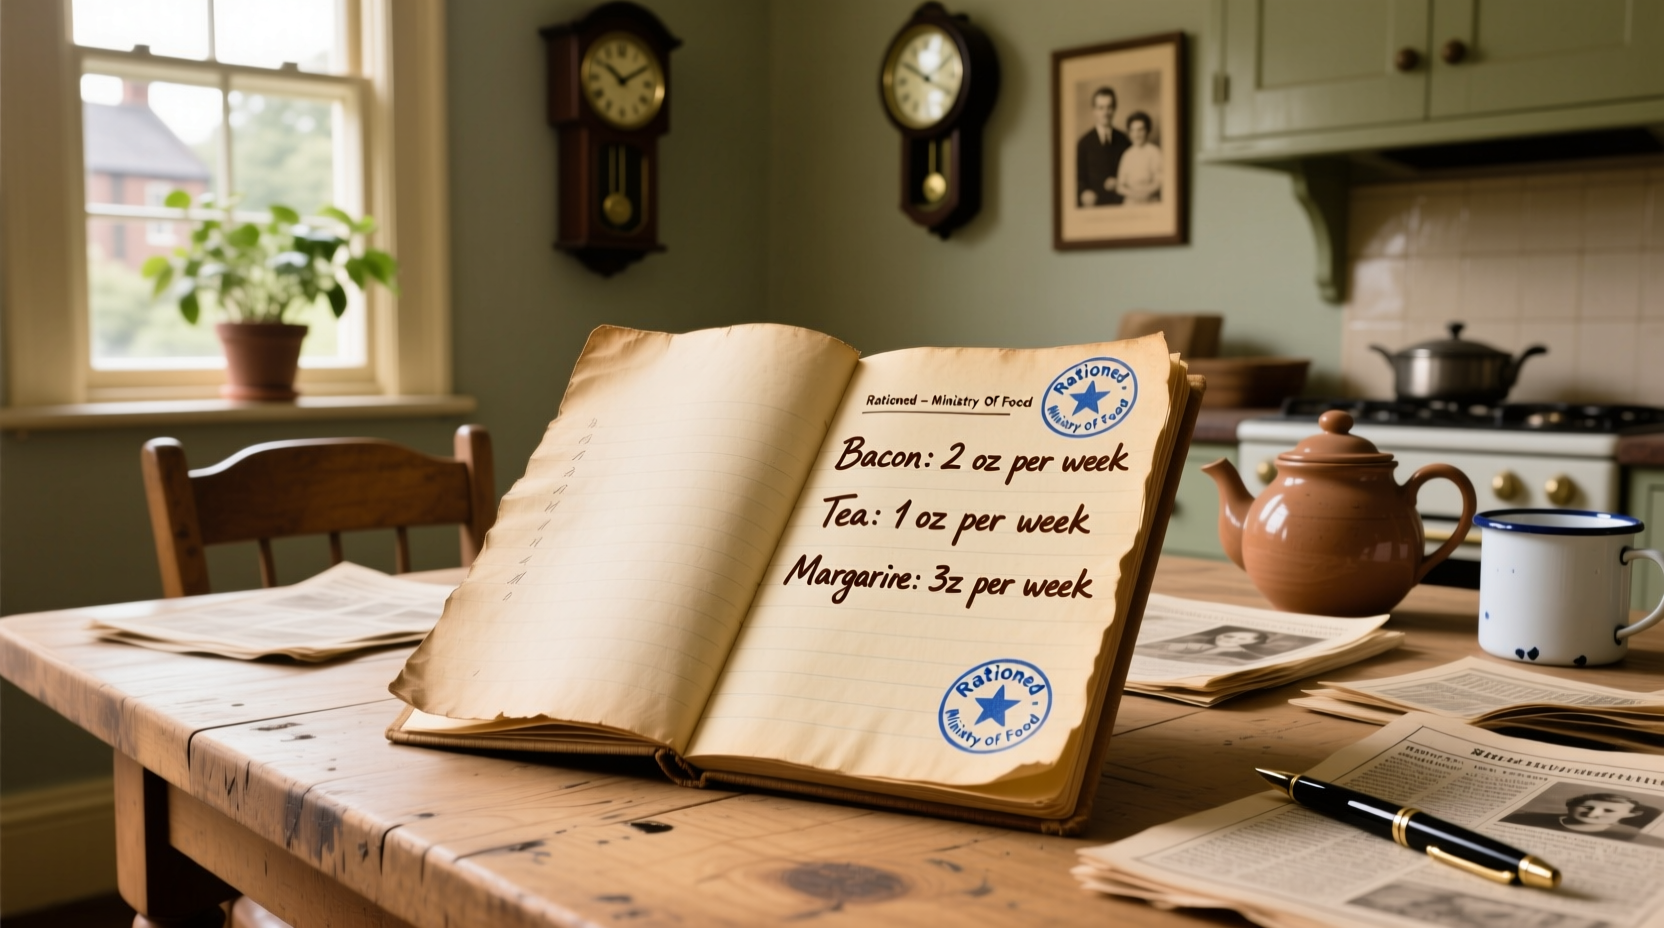 Rationed – Ministry Of Food
Rationed.
Ministry of Food
Bacon: 2 oz per week
Tea: 1 oz per week
Margarire: 3z per week
Rationed.
Ministry of Food